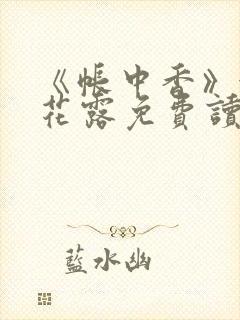 《帳中香》
花露免費讀
藍水幽